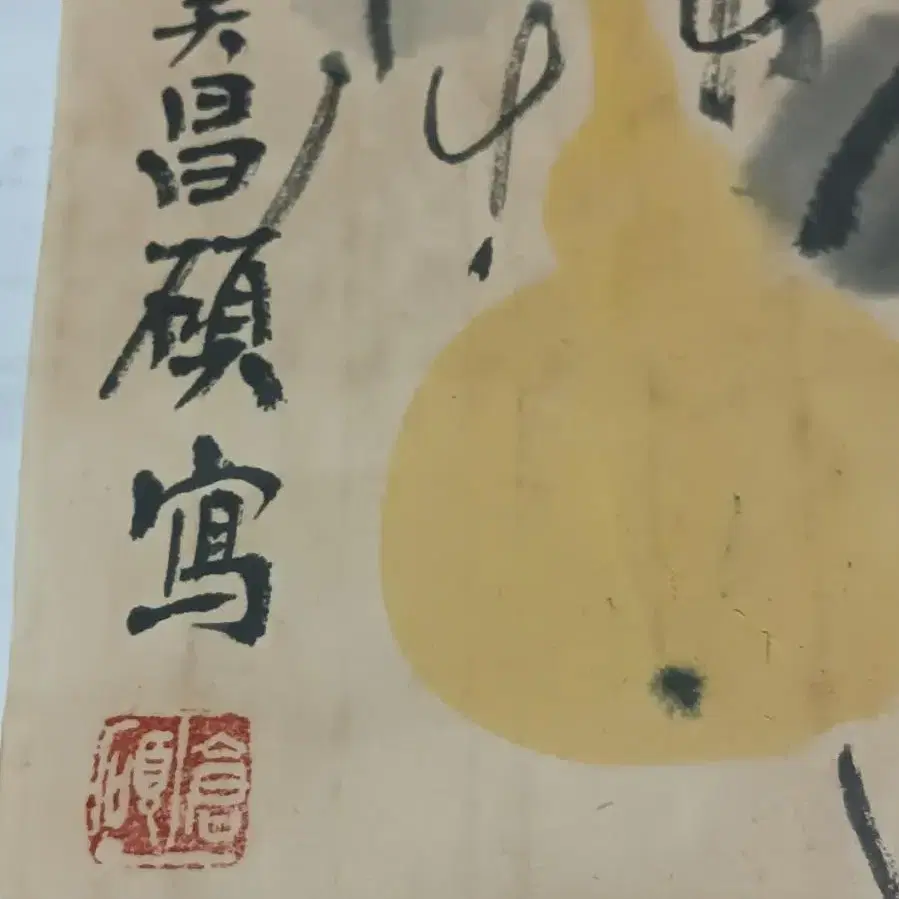 吴昌碩寫
倉碩